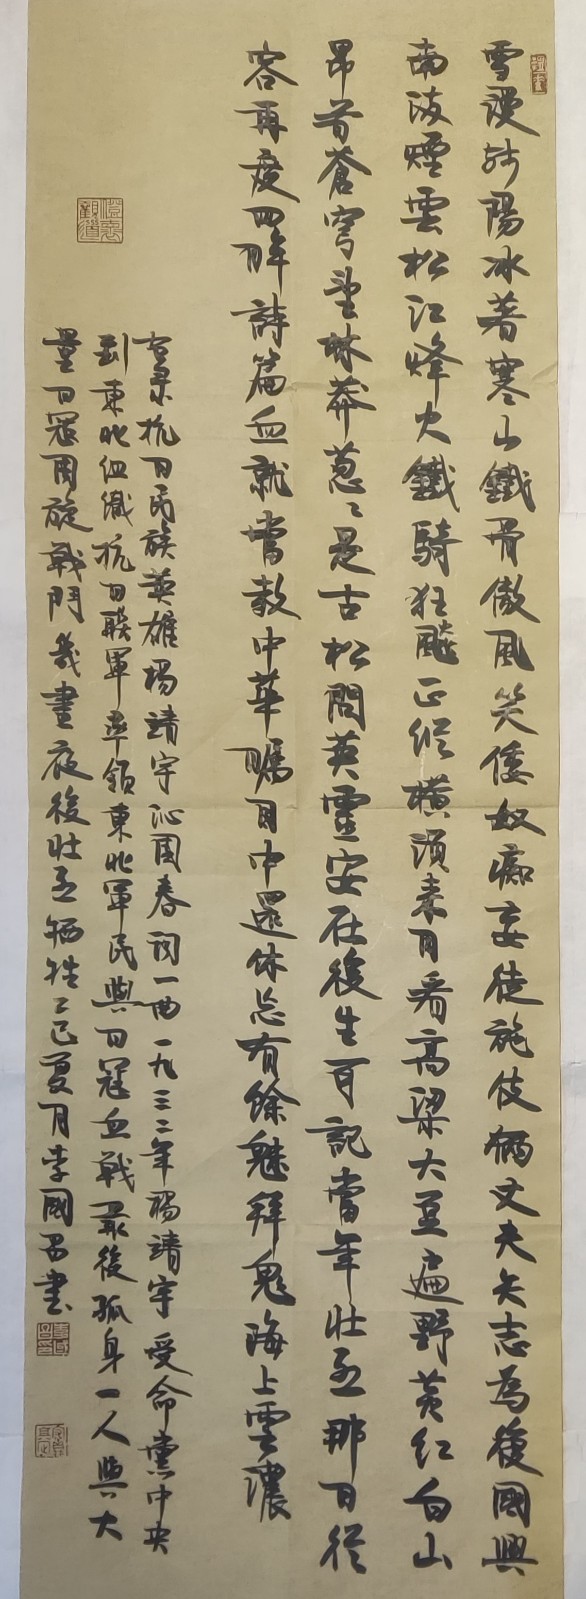 雪漫辽陽冰著寒山鐵骨傲風笑倭奴痴妄徒施伎倆丈夫矢志為復國興
南海煙雲松江烽火鐵騎狂飈正縱橫須来日看高梁大豆遍野黄红白山
昂首蒼穹望林莽葱〻是古松問英靈安在後生可記當年壮烈那日從
容再度回眸詩篇血就當教中華矚目中還休忘有餘魅拜鬼海上雲濃
右录抗日民族英雄楊靖宇沁園春詞一曲一九三二年楊靖宇受命黨中央
到東北组織抗日聯軍率領東北軍民與日寇血戰最後孤身一人與大
量日寇周旋戰鬥幾晝夜後壮烈牺牲乙巳夏月李國君書